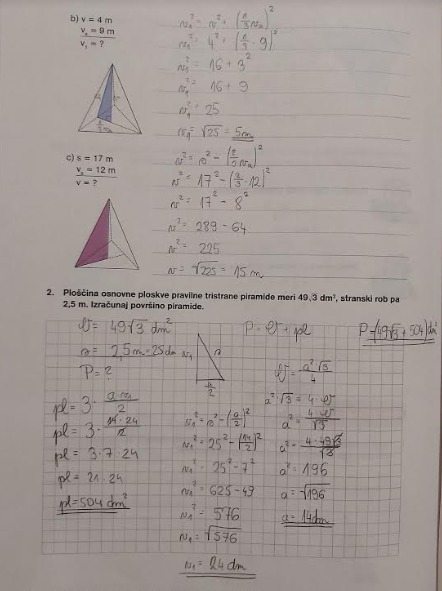 b) v = 4 m
vₐ = 9 m
v₁ = ?
v₁² = v² + (1/3 vₐ)²
v₁² = 4² + (1/3 · 9)²
v₁² = 16 + 3²
v₁² = 16 + 9
v₁² = 25
v₁ = √25 = 5m
c) s = 17 m
vₐ = 12 m
v = ?
v² = s² - (2/3 vₐ)²
v² = 17² - (2/3 · 12)²
v² = 17² - 8²
v² = 289 - 64
v² = 225
v = √225 = 15 m
2. Ploščina osnovne ploskve pravilne tristrane piramide meri 49√3 dm², stranski rob pa
2,5 m. Izračunaj površino piramide.
O = 49√3 dm²
s = 2,5 m = 25dm
P = ?
pl = 3 · a·v₁/2
pl = 3 · 14 · 24/2
pl = 3 · 7 · 24
pl = 21 · 24
pl = 504 dm²
v₁
s
a/2
v₁² = s² - (a/2)²
v₁² = 25² - (14/2)²
v₁² = 25² - 7²
v₁² = 625 - 49
v₁² = 576
v₁ = √576
v₁ = 24 dm
P = O + pl
O = a²√3/4
a²√3 = 4 · O
a² = 4 · O/√3
a² = 4 · 49√3/√3
a² = 196
a = √196
a = 14dm
P = (49√3 + 504) dm²